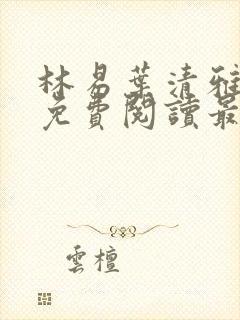 林易葉清雅
免費閱讀最
雲檀